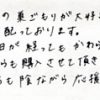 の巣ごもりが大好
配っております。
日が経ってもかわら
らも購入させて頂き
らも陰ながら応援